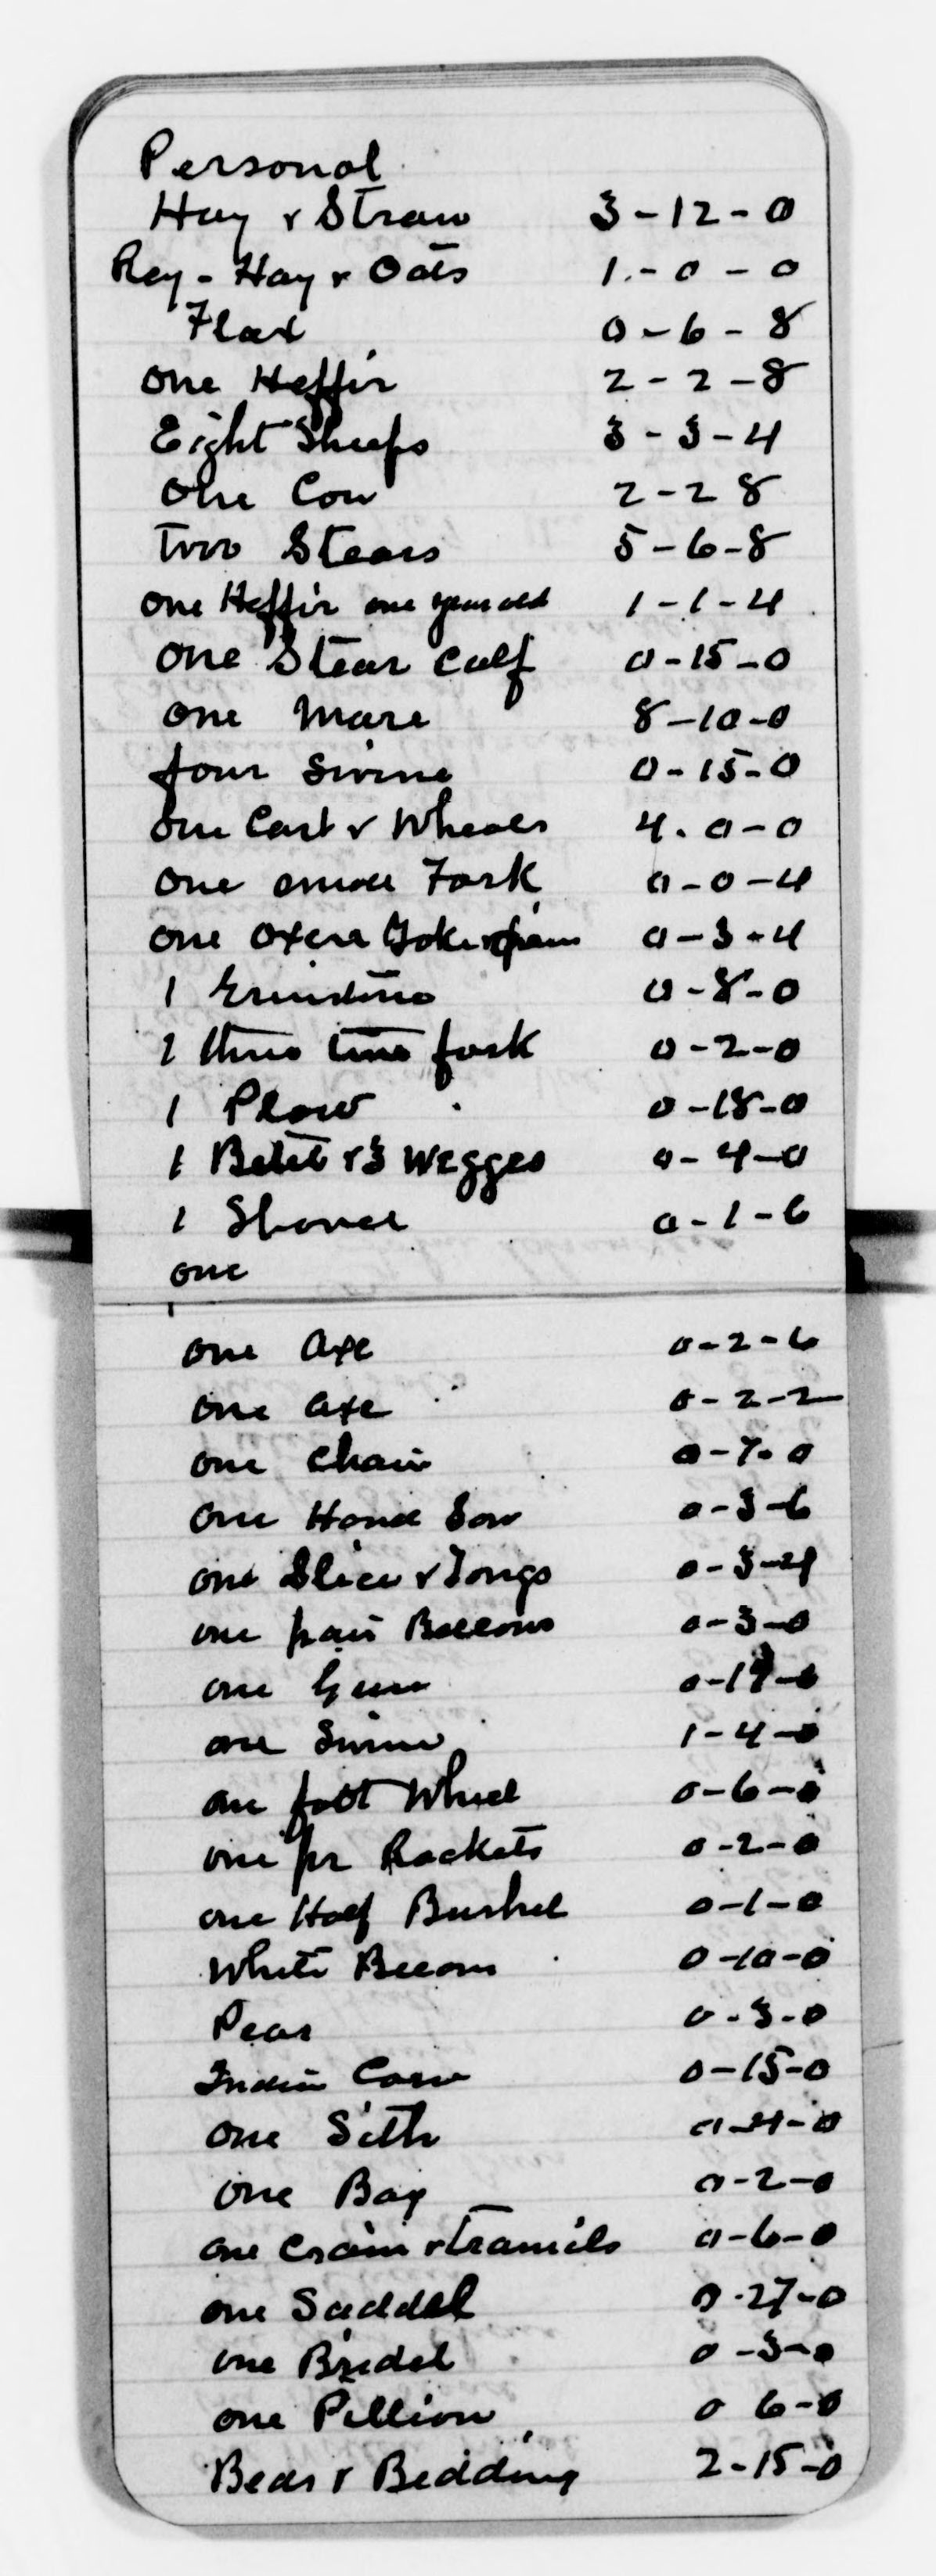 Personal
Hay & Straw 3-12-0
Rey - Hay & Oats 1-0-0
Flax 0-6-8
one Heffir 2-2-8
Eight Sheeps 3-3-4
One Cow 2-2 8
Two Stears 5-6-8
one Heffir one year old 1-1-4
one Stear calf 0-15-0
one Mare 8-10-0
four Swine 0-15-0
one Cart & Wheales 4.0-0
one small Fork 0-0-4
one Oxen Yoke & chain 0-3-4
1 Grinstino 0-8-0
1 three tine fork 0-2-0
1 Plow 0-18-0
1 Betel & 3 Wegges 0-4-0
1 Shovel 0-1-6
one
one Axe 0-2-6
one axe 0-2-2
one chain 0-7-0
one Hand Saw 0-3-6
one Slice & Tongs 0-3-4
one pair Bellows 0-3-0
one Gun 0-19-0
one Swine 1-4-0
one foot Wheel 0-6-0
one pr Rackets 0-2-0
one Half Bushel 0-1-0
White Beeans 0-10-0
Peas 0-3-0
Indian Corn 0-15-0
one Sith 0-4-0
one Bag 0-2-0
one Crain & tramils 0-6-0
one Saddel 0-27-0
one Bridel 0-3-0
one Pillion 0 6-0
Beds & Bedding 2-15-0